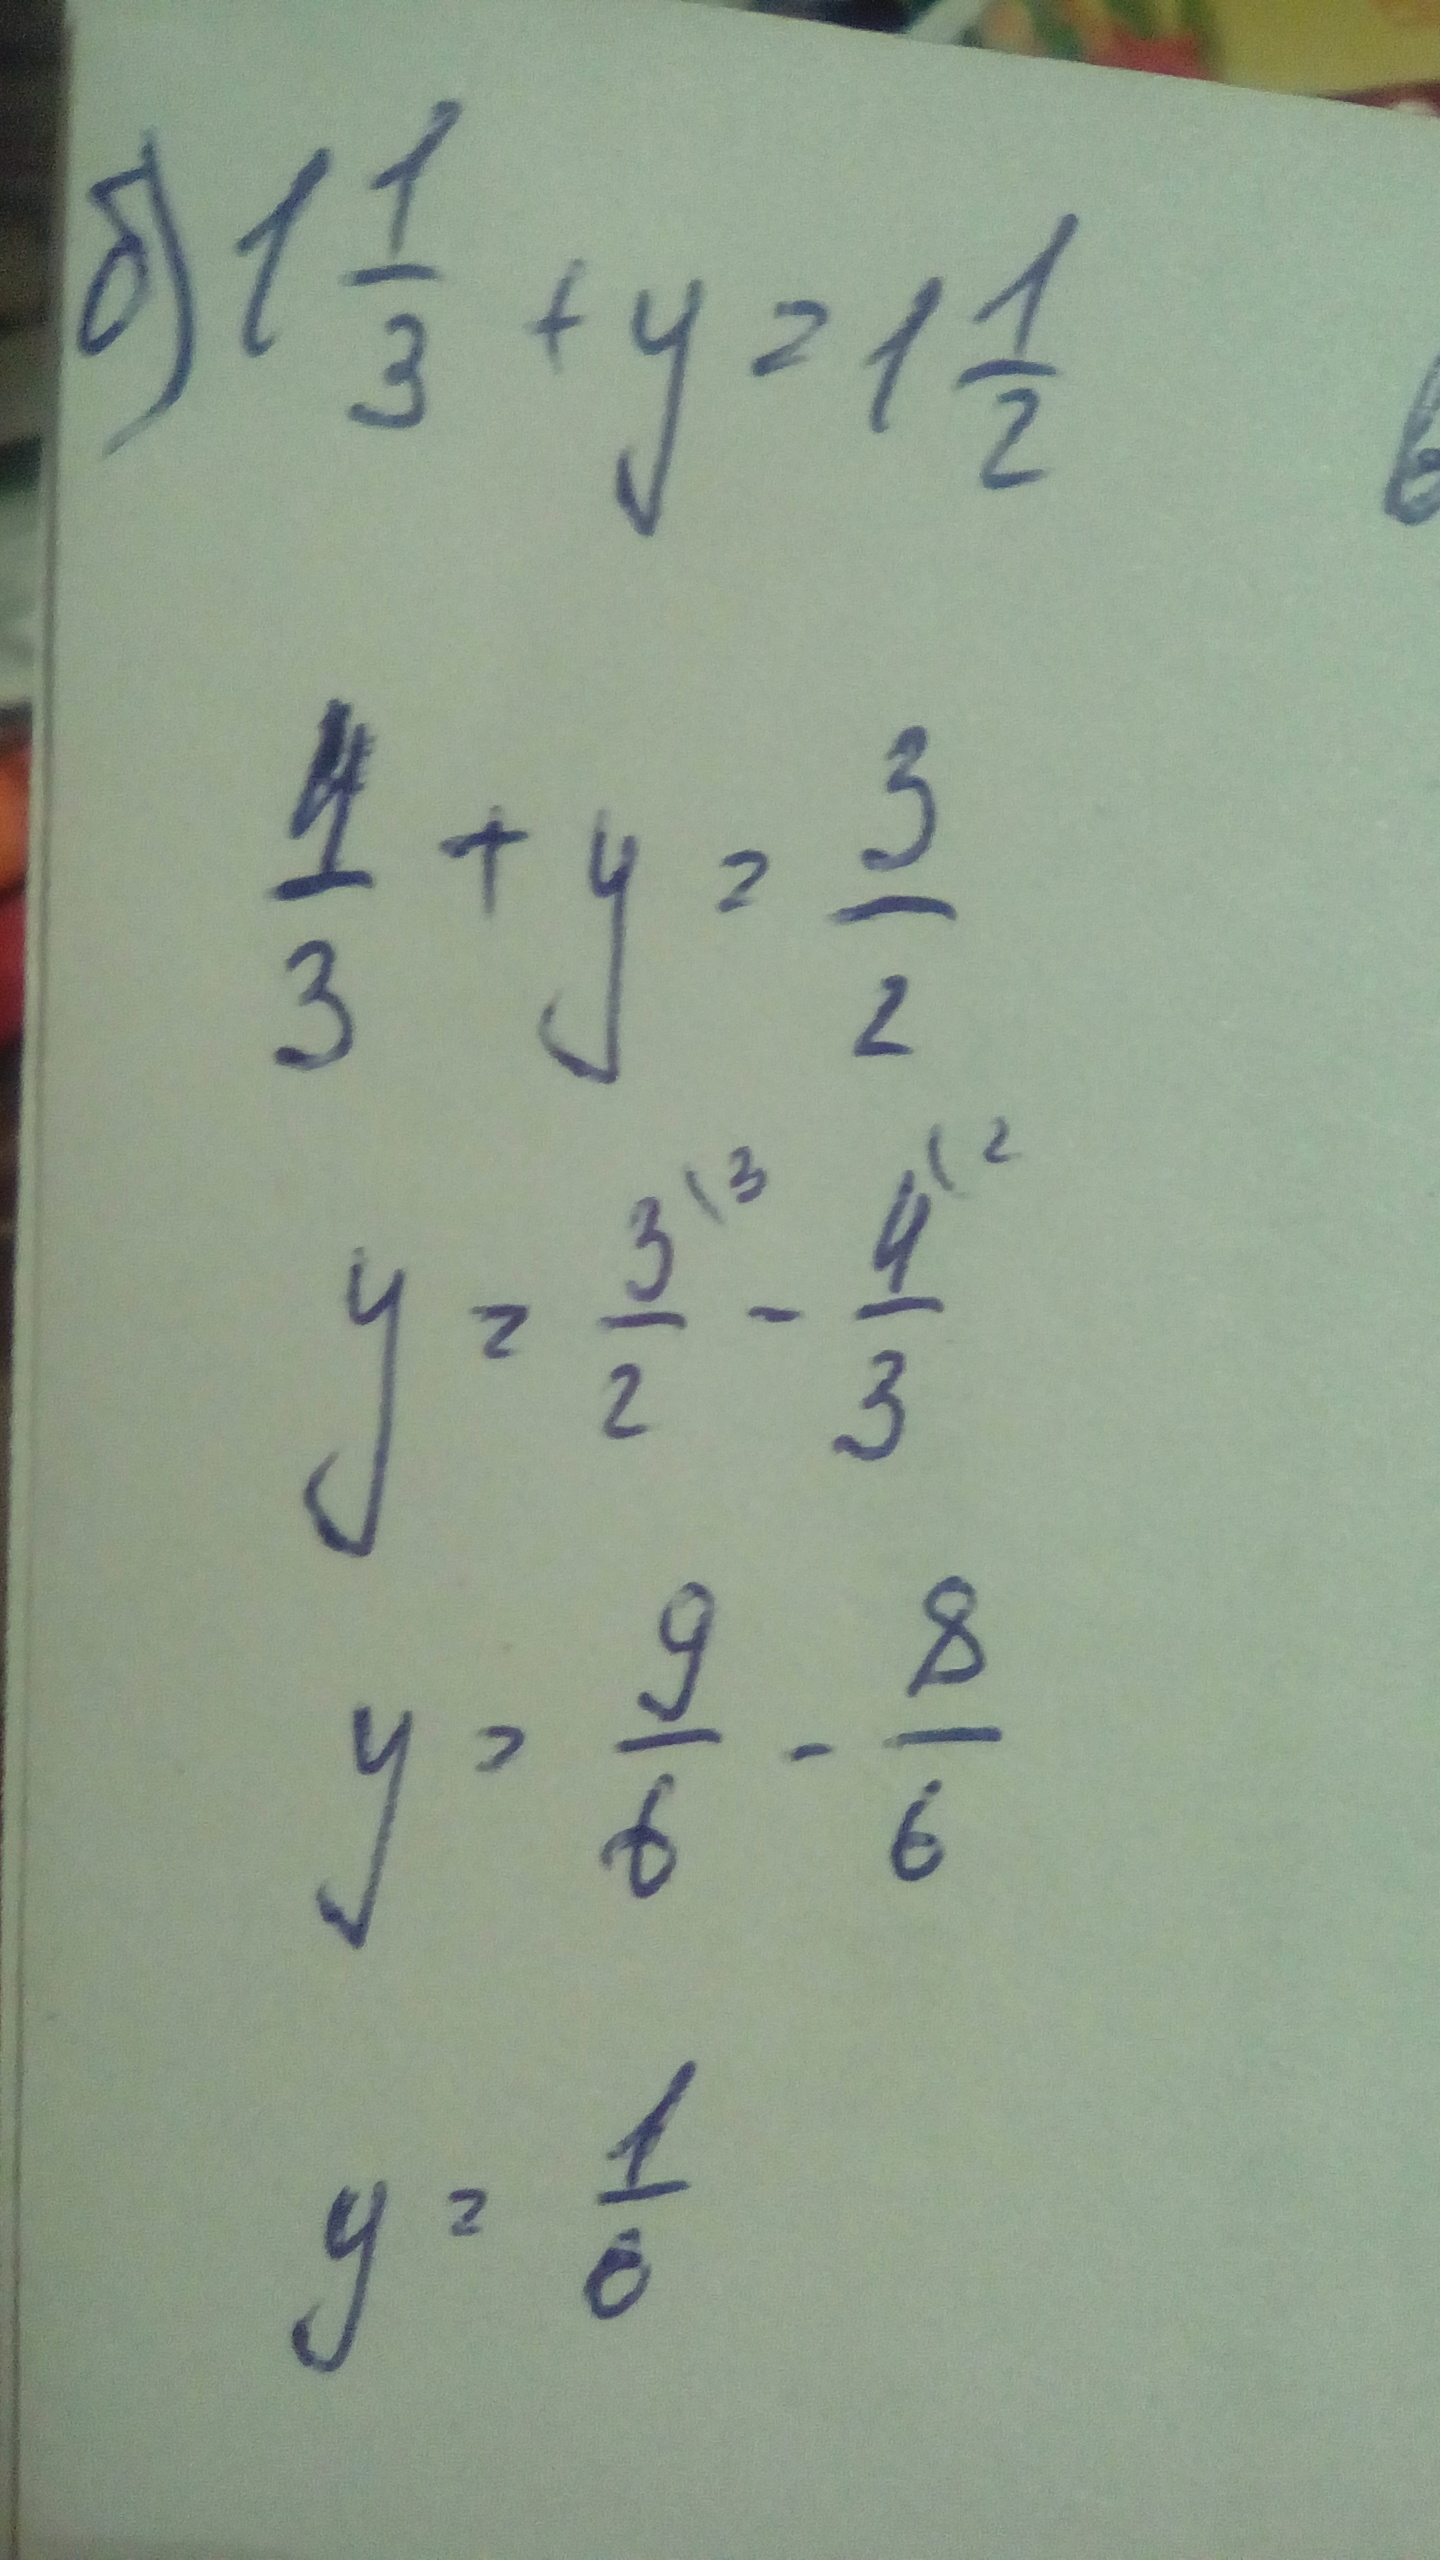 б) 1 1/3 + y = 1 1/2
4/3 + y = 3/2
y = 3/2 \3 - 4/3 \2
y = 9/6 - 8/6
y = 1/6